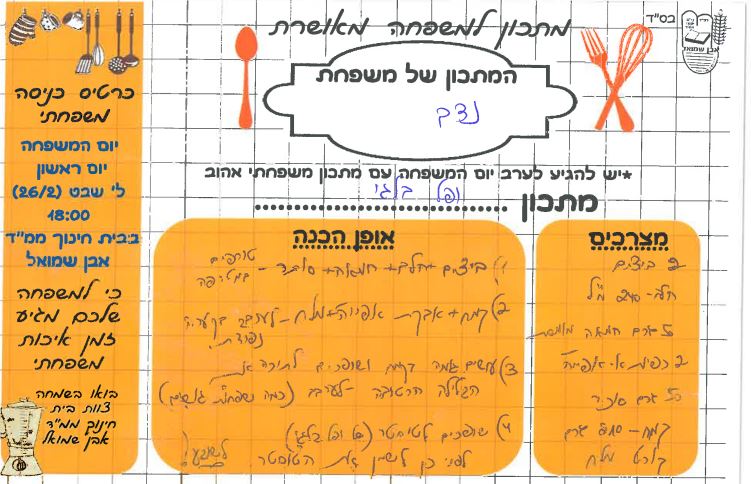 בס"ד
אבן שמואל
מתכון למשפחה מאושרת
המתכון של משפחת
נצב
*יש להגיע לערב יום המשפחה עם מתכון משפחתי אהוב
מתכון ופל בלגי
מצרכים
2 ביצים
חלב - 240 מ"ל
50 גרם חמאה מומסת
2 כפיות א. אפייה
50 גרם סוכר
קמח - 210 גרם
קורט מלח
אופן הכנה
1) ביצים + חלב + חמאה + סוכר - טורפים
במטרפה
2) קמח + אבקת אפייה + מלח - לערבב בקערה
נפרדת
3) עושים גומה בקמח ושופכים לתוכה את
הבלילה הרטובה - לערבב (כמה שפחות גושים)
4) שופכים לטוסטר (של ופל בלגי)
לפני כן לשמן את הטוסטר
כרטיס כניסה
משפחתי
יום המשפחה
יום ראשון
ל' שבט (26/2)
18:00
בבית חינוך ממ"ד
אבן שמואל
כי למשפחה
שלכם מגיע
זמן איכות
משפחתי
בואו בשמחה
צוות בית
חינוך ממ"ד
אבן שמואל